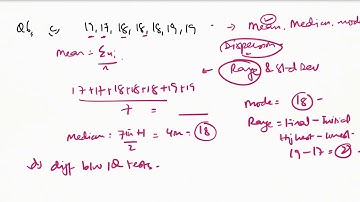 Q6, 17, 17, 18, 18, 18, 19, 19 → Mean, Median, mode
Dispersion
Mean = Σxi / n
Range & Std Dev
17+17+18+18+18+19+19 / 7 = 
mode = 18 -
Median: 7+1 / 2 = 4th - 18
Range = Final - Initial
Highest - lowest
19 - 17 = 2
diff b/w IQ tests -